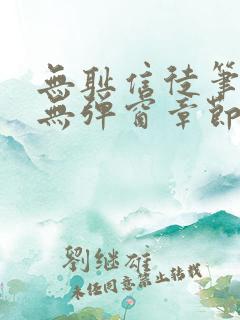 無耻信徒筆
無彈窗章節
劉继雄
未任同意禁止转载